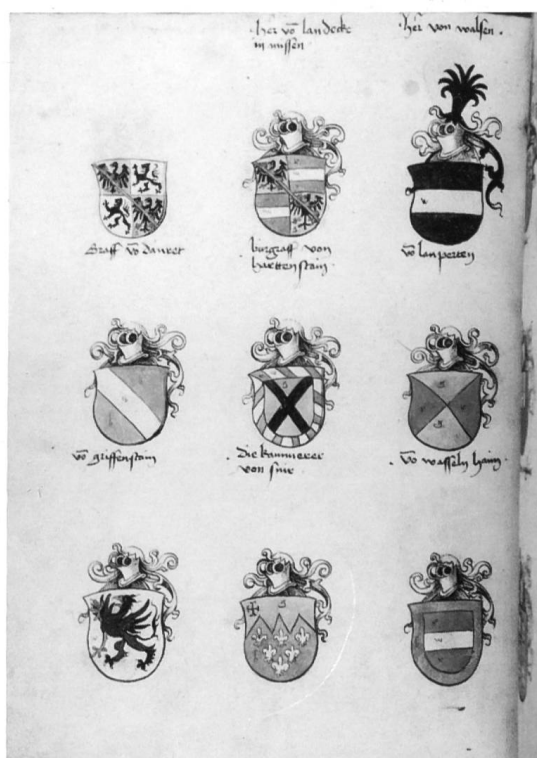 her võ landeck
in missen
her von walsen
Graff võ dauret
burgraff von
harttenstain
võ lanperten
võ griffenstain
Die kammerer
von
võ wasseln haim